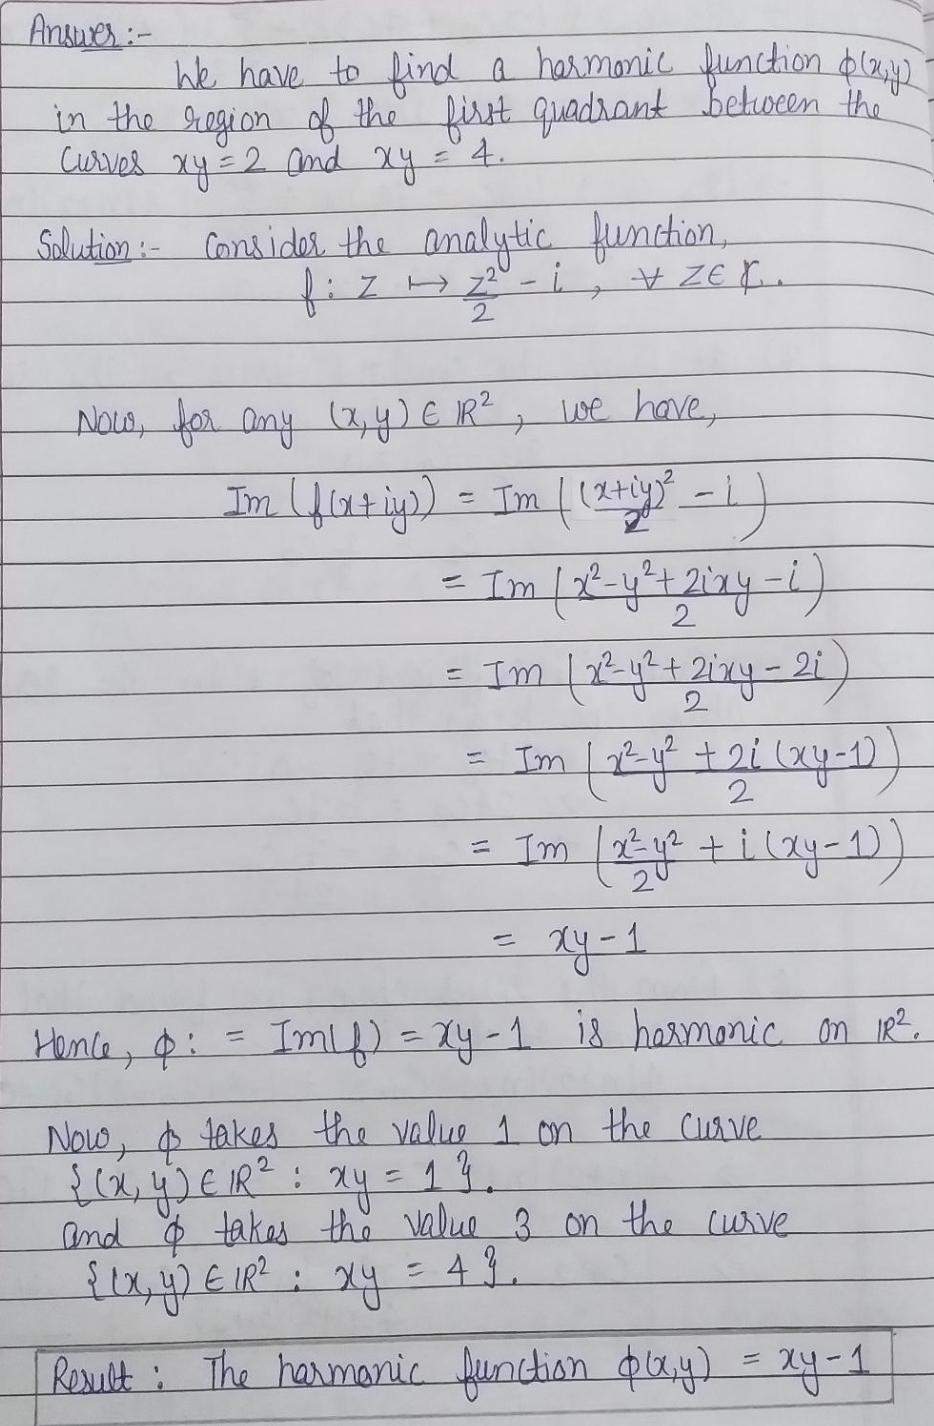 Answer :-
We have to find a harmonic function ϕ(x,y)
in the region of the first quadrant between the
curves xy = 2 and xy = 4.
Solution :- Consider the analytic function,
f : z ↦ z²/2 - i , ∀ z ∈ ℂ.
Now, for any (x,y) ∈ ℝ² , we have,
Im (f(x+iy)) = Im ((x+iy)²/2 - i)
= Im (x²-y²+2ixy/2 - i)
= Im (x²-y²+2ixy-2i/2)
= Im (x²-y² + 2i(xy-1)/2)
= Im (x²-y²/2 + i(xy-1))
= xy - 1
Hence, ϕ : = Im(f) = xy - 1 is harmonic on ℝ².
Now, ϕ takes the value 1 on the curve
{(x,y) ∈ ℝ² : xy = 1}.
and ϕ takes the value 3 on the curve
{(x,y) ∈ ℝ² : xy = 4}.
Result : The harmonic function ϕ(x,y) = xy-1